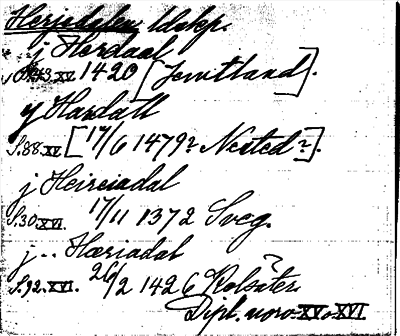 Herjedalen, ldskp.
j Herdaal
S.43.XV. 1420 [Jemtland].
y Hardall
S.88.XV [17/6 1479? Nested?].
j Heireiadal
S.30.XVI. 17/11 1372 Sveg.
j .. Hæriadal
S.92.XVI. 26/2 1426 Kolsäter?
Dipl. norv. XV-XVI